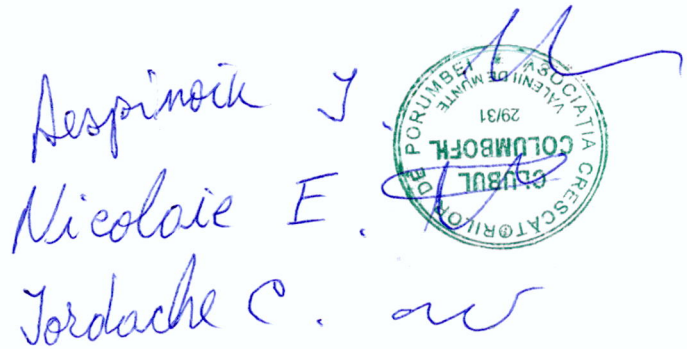 Despinoiu I.
Nicolaie E.
Iordache C.
ASOCIAȚIA CRESCĂTORILOR DE PORUMBEI
VĂLENII DE MUNTE
29/31
COLUMBOFIL
CLUBUL